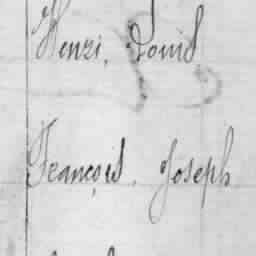 Henri, Louis
François, Joseph